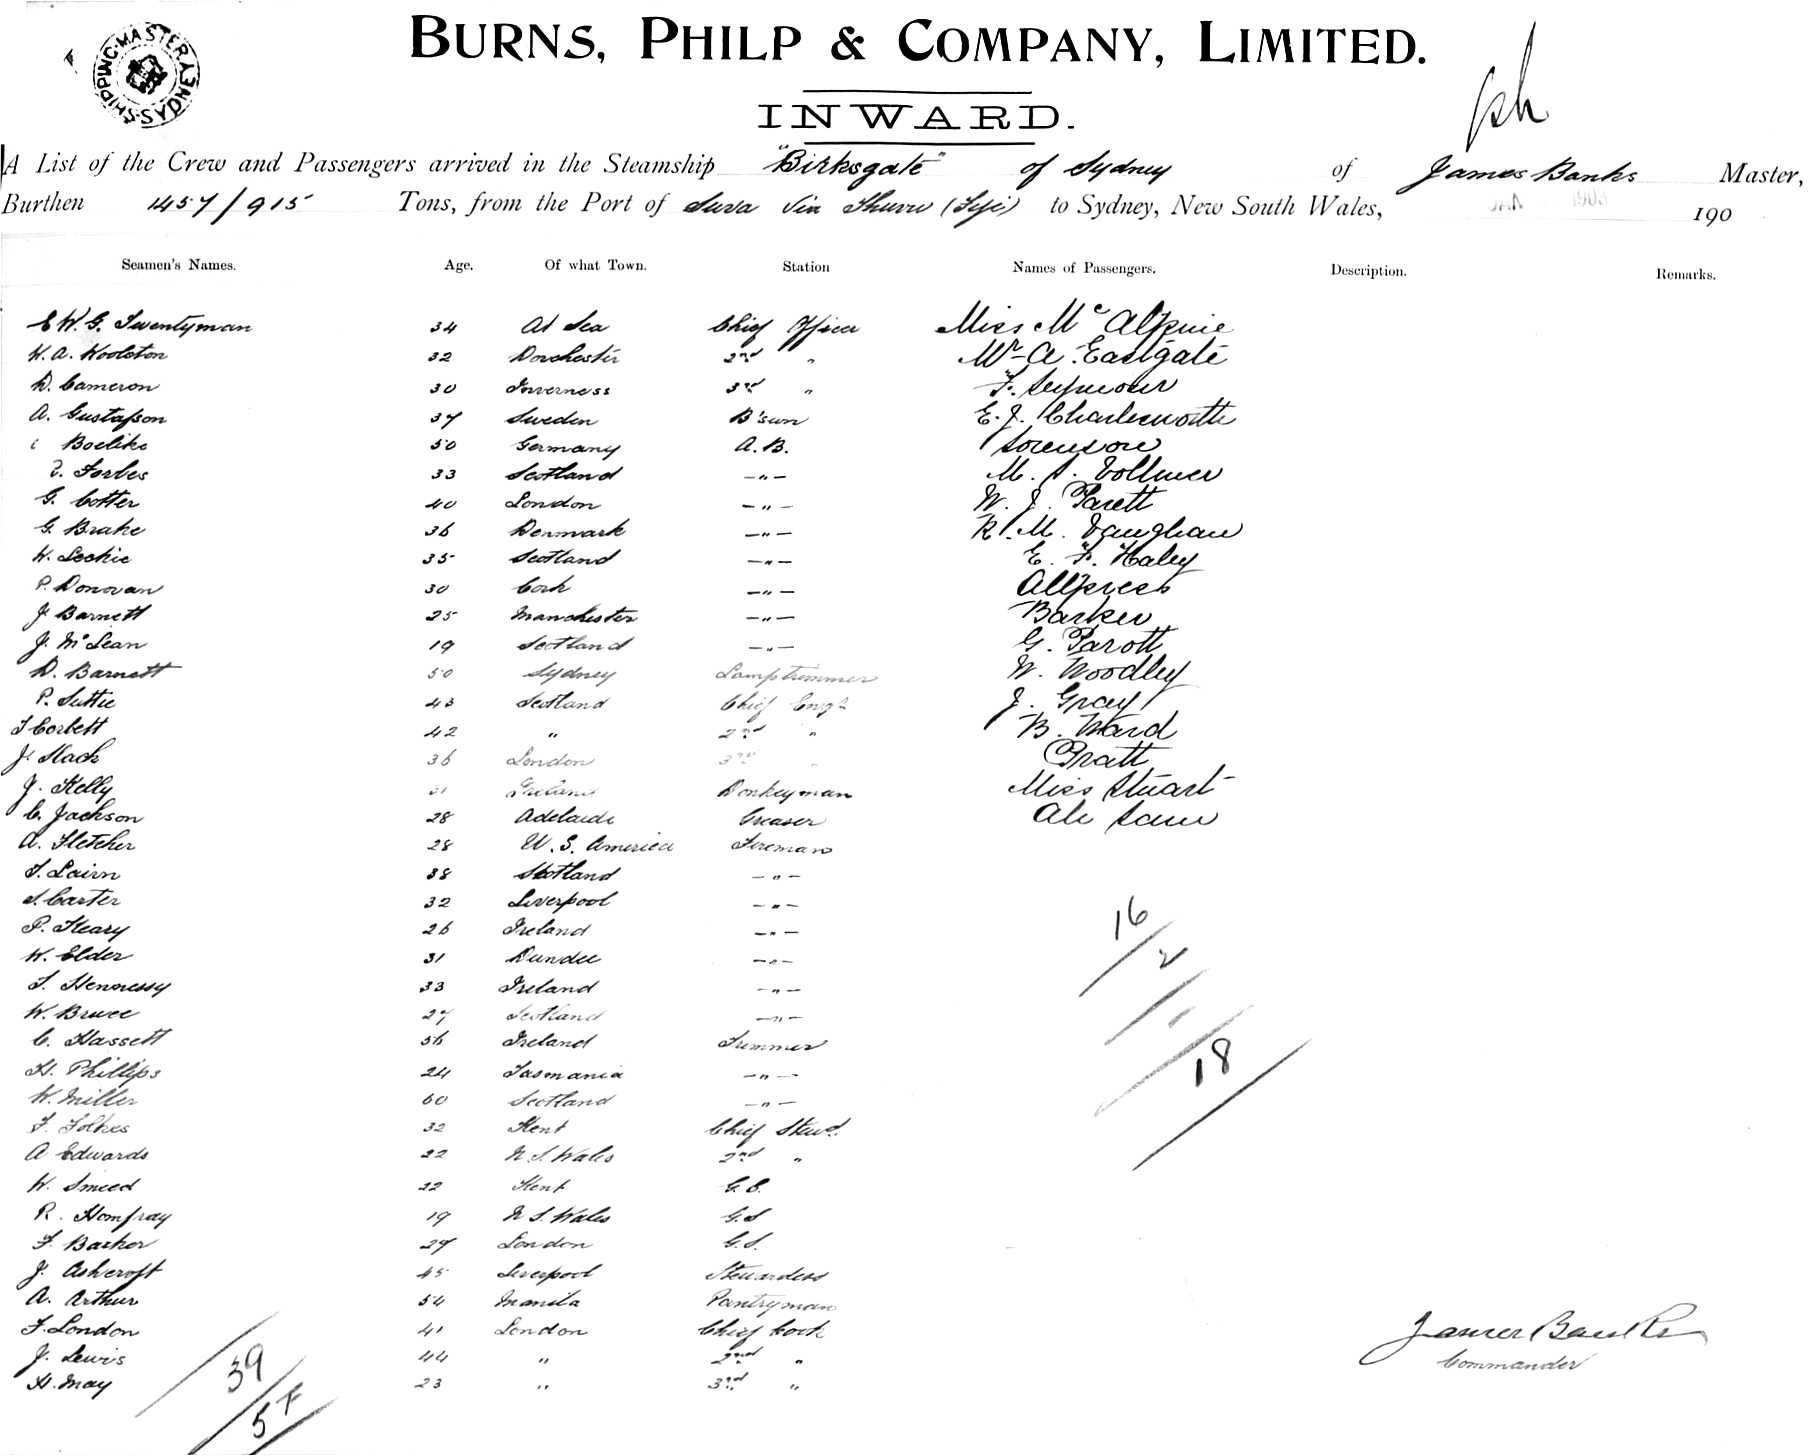 SHIPPING MASTER SYDNEY
BURNS, PHILP & COMPANY, LIMITED.
INWARD.
A List of the Crew and Passengers arrived in the Steamship "Birksgate" of Sydney of James Banks Master,
Burthen 1457/915 Tons, from the Port of Suva via (Fiji) to Sydney, New South Wales, 190
Seamen's Names. Age. Of what Town. Station Names of Passengers. Description. Remarks.
E W. G. Twentyman 34 At Sea Chief Officer Miss McAlpine
W. A. Woolston 32 Dorchester 2nd " Mr A. Eastgate
D. Cameron 30 Inverness 3rd " F. Seymour
A. Gustafson 37 Sweden B'sun E. J. Charlesworth
Boelike 50 Germany A.B. Sorenson
Forbes 33 Scotland —"— M. S. Vollmer
G. Cotter 40 London —"— W. J. Parett
G. Brake 36 Denmark —"— R. M. Vaughan
W. Leckie 35 Scotland —"— E. F. Haley
P. Donovan 30 Cork —"— Allpress
J. Barnett 25 Manchester —"— Barker
J. McLean 19 Scotland —"— G. Parott
D. Barnett 50 Sydney Lamptrimmer W. Woodley
P. Suttie 43 Scotland Chief Engr J. Gray
T Corbett 42 " 2nd " B. Ward
J. Slack 36 London 3rd " Pratt
J. Kelly Ireland Donkeyman Miss Stuart
C. Jackson 28 Adelaide Greaser Ah Sam
A. Fletcher 28 U. S. America Fireman
T. Lairn 38 Scotland —"—
S. Carter 32 Liverpool —"—
P. Heary 26 Ireland —"—
W. Elder 31 Dundee —"—
T. Hennessy 33 Ireland —"—
W. Bruce 27 Scotland —"—
C. Hassett 56 Ireland Trimmer
H. Phillips 24 Tasmania —"—
W. Miller 60 Scotland —"—
F. Folkes 32 Kent Chief Stewd.
A Edwards 22 N. S. Wales 2nd "
W. Smeed 22 Kent G.S.
R. Homfray 19 N. S. Wales G.S
F. Barker 29 London G.S.
J. Ashcroft 45 Liverpool Stewardess
A. Arthur 54 Manila Pantryman
F. London 41 London Chief Cook
J. Lewis 44 " 2nd "
H. May 23 " 3rd "
16
2
18
39
57
James Banks
Commander